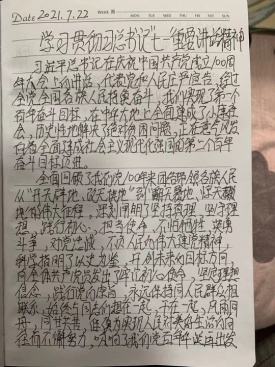 Date 2021.7.22
学习贯彻习总书记七一重要讲话精神
习近平总书记在庆祝中国共产党成立100周
年大会上的讲话，代表党和人民庄严宣告，经过
全党全国各族人民持续奋斗，我们实现了第一个
百年奋斗目标，在中华大地上全面建成了小康社
会，历史性地解决了绝对贫困问题，正在意气风发
向着全面建成社会主义现代化强国的第二个百年
奋斗目标迈进。
全面回顾了我们党100年来团结带领各族人民
从“开天辟地，
坚持真理，坚守理
想，践行初心、担当使命，不怕牺牲，英勇
斗争，对党忠诚，不负人民的伟大建党精神，
科学指明了以史为鉴、开创未来的目标方向，
向全体共产党员发出了
坚定理想
信念，践行党的宗旨，永远保持同人民群众血肉
联系，始终与同志们想在一起，干在一起，风雨同
舟，同甘共苦，继续为实现人民对美好生活的向
往而不懈努力，